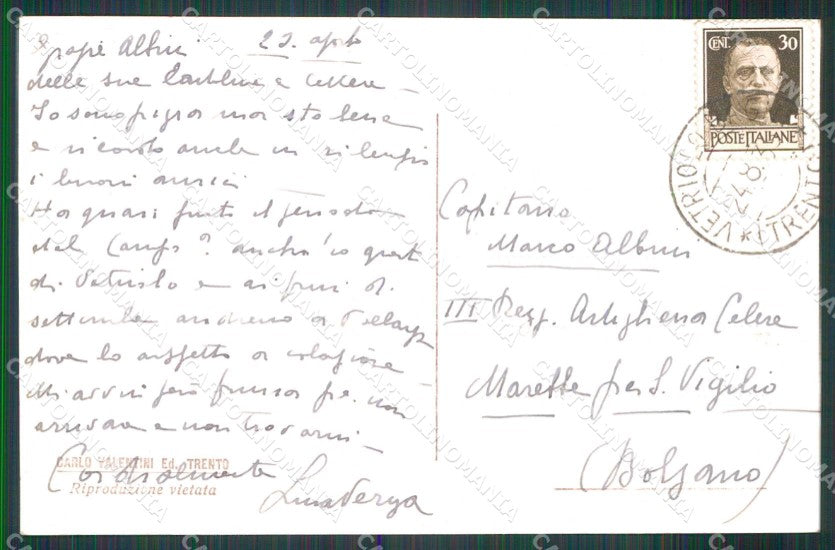 Grazie Albini 23. agosto
delle sue cartoline e lettere –
Io sono pigra ma sto bene
e ricordo anche in silenzio
i buoni amici
Ha quasi finito il periodo
del Campo? anch'io questo
di Vetriolo e ai primi di
settembre andremo a
dove lo aspetto a colazione –
Mi avvisi però prima per non
arrivare e non trovarmi –
Cordialmente
CARLO VALENTINI Ed. TRENTO
Riproduzione vietata
CENT. 30
POSTE ITALIANE
VETRIOLO
(TRENTO)
Capitano
Marco Albini
III Regg. Artiglieria Celere
Marebbe per S. Vigilio
(Bolzano)
CARTOLINOMANIA